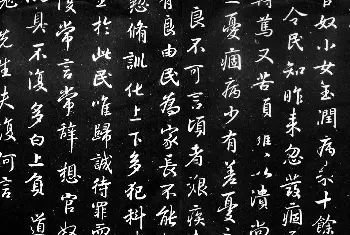 官奴小女玉潤病来十餘
令民知昨来忽發痼
轉篤又苦頭以潰尚
憂痼病少有差憂
良不可言頃者艱疾
有良由民為家長不能
脩訓化上下多犯科
至於此民唯歸誠待罪而
復常言常辞想官奴
以具不復多白上負道
先生夫復何言